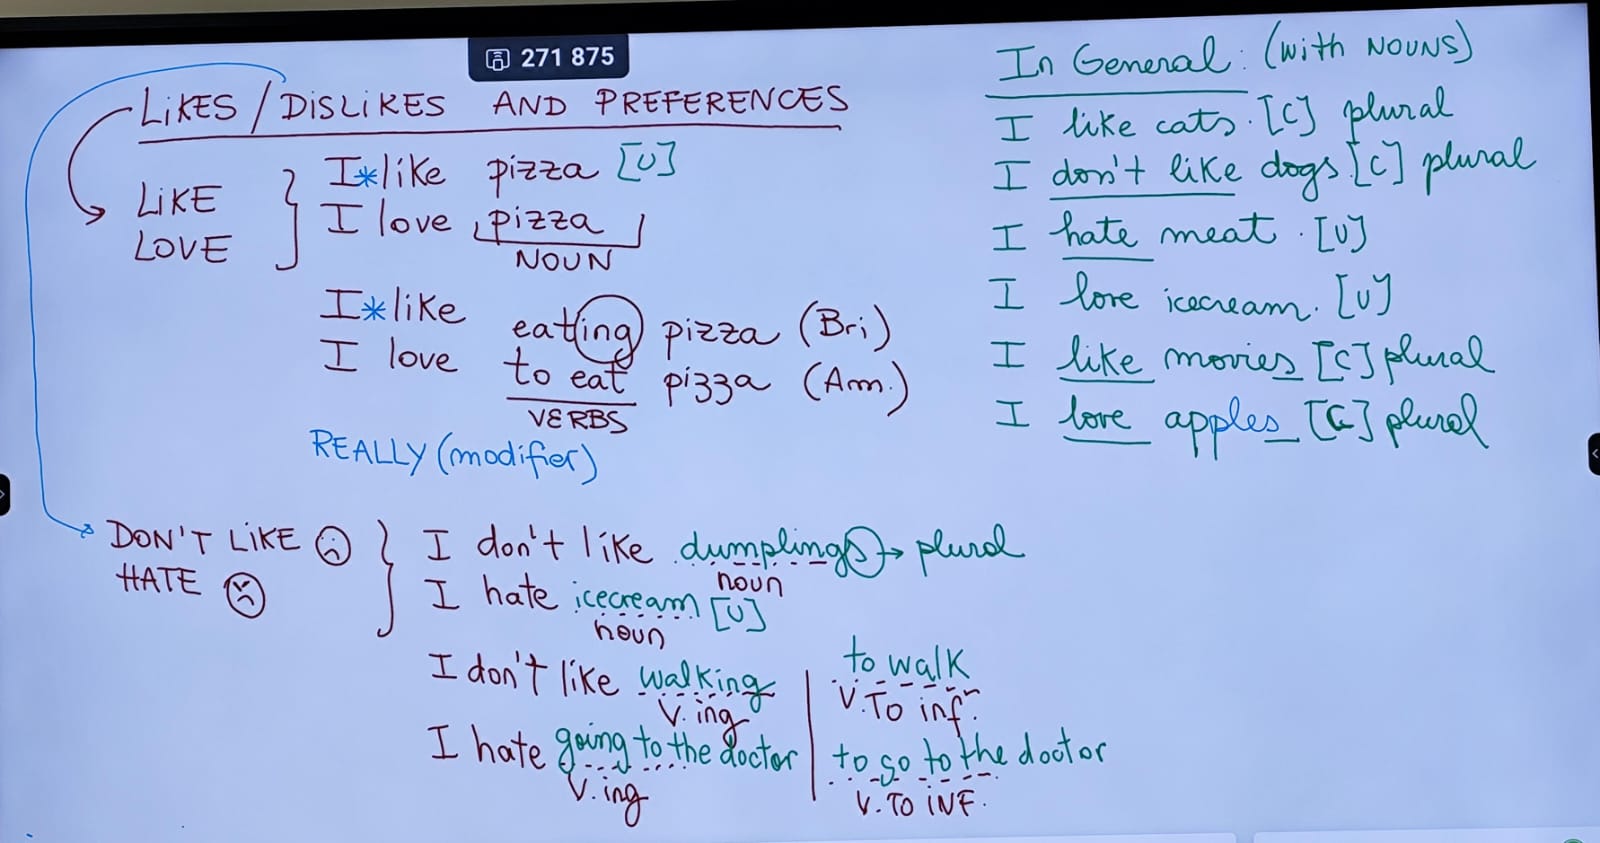 271 875
LIKES / DISLIKES AND PREFERENCES
LIKE
LOVE
I*like pizza [U]
I love pizza
NOUN
I*like
I love
eating pizza (Bri)
to eat pizza (Am.)
VERBS
REALLY (modifier)
DON'T LIKE
HATE
I don't like dumplings → plural
noun
I hate icecream [U]
noun
I don't like walking | to walk
V. ing V. TO inf.
I hate going to the doctor | to go to the doctor
V. ing V. TO INF.
In General: (with NOUNS)
I like cats. [C] plural
I don't like dogs [C] plural
I hate meat. [U]
I love icecream. [U]
I like movies [C] plural
I love apples [C] plural